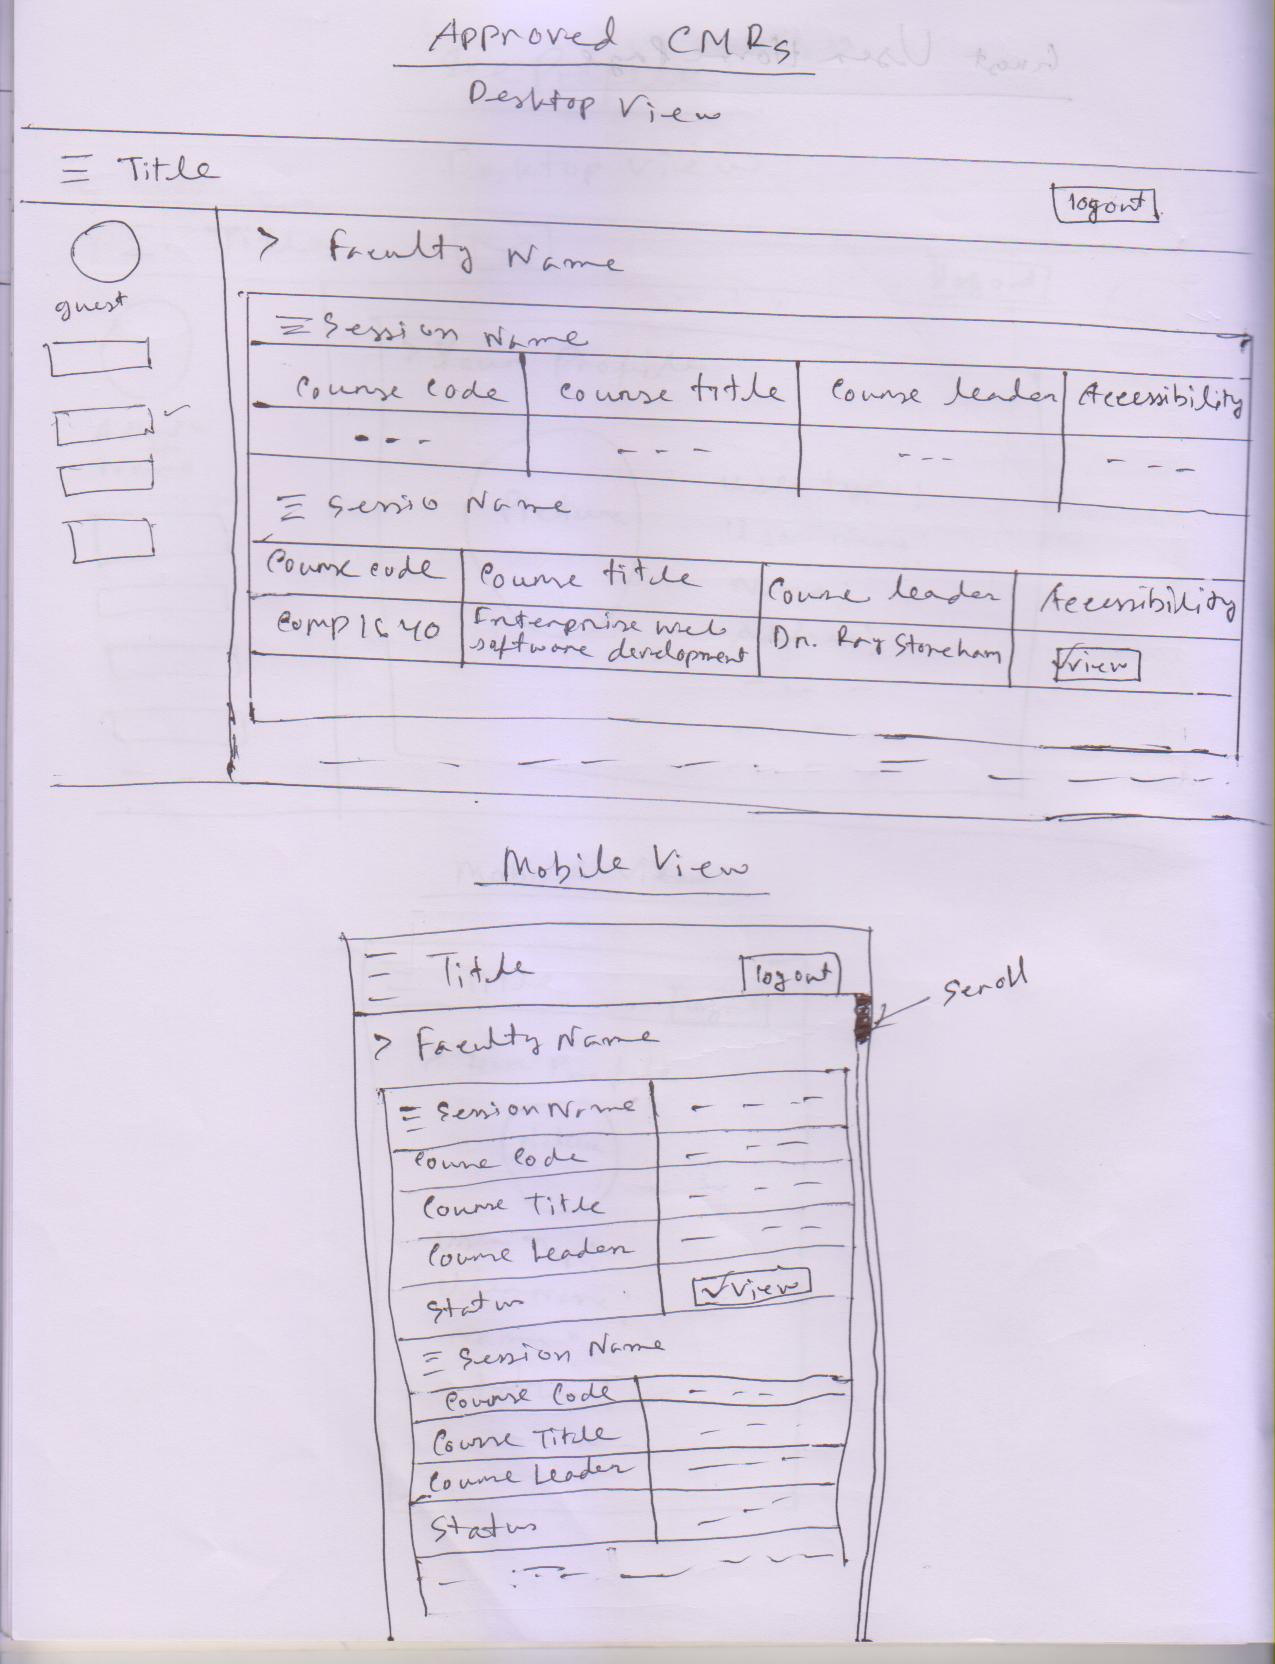 Approved CMRs
Desktop View
Title
logout
guest
> Faculty Name
Session Name
Course code Course title Course leader Accessibility
Sessio Name
Course code Course title Course leader Accessibility
Comp1640 Enterprise web software development Dr. Ray Stoneham √view
Mobile View
Title logout
scroll
> Faculty Name
Session Name
Course Code
Course Title
Course Leader
Status √view
Session Name
Course Code
Course Title
Course Leader
Status